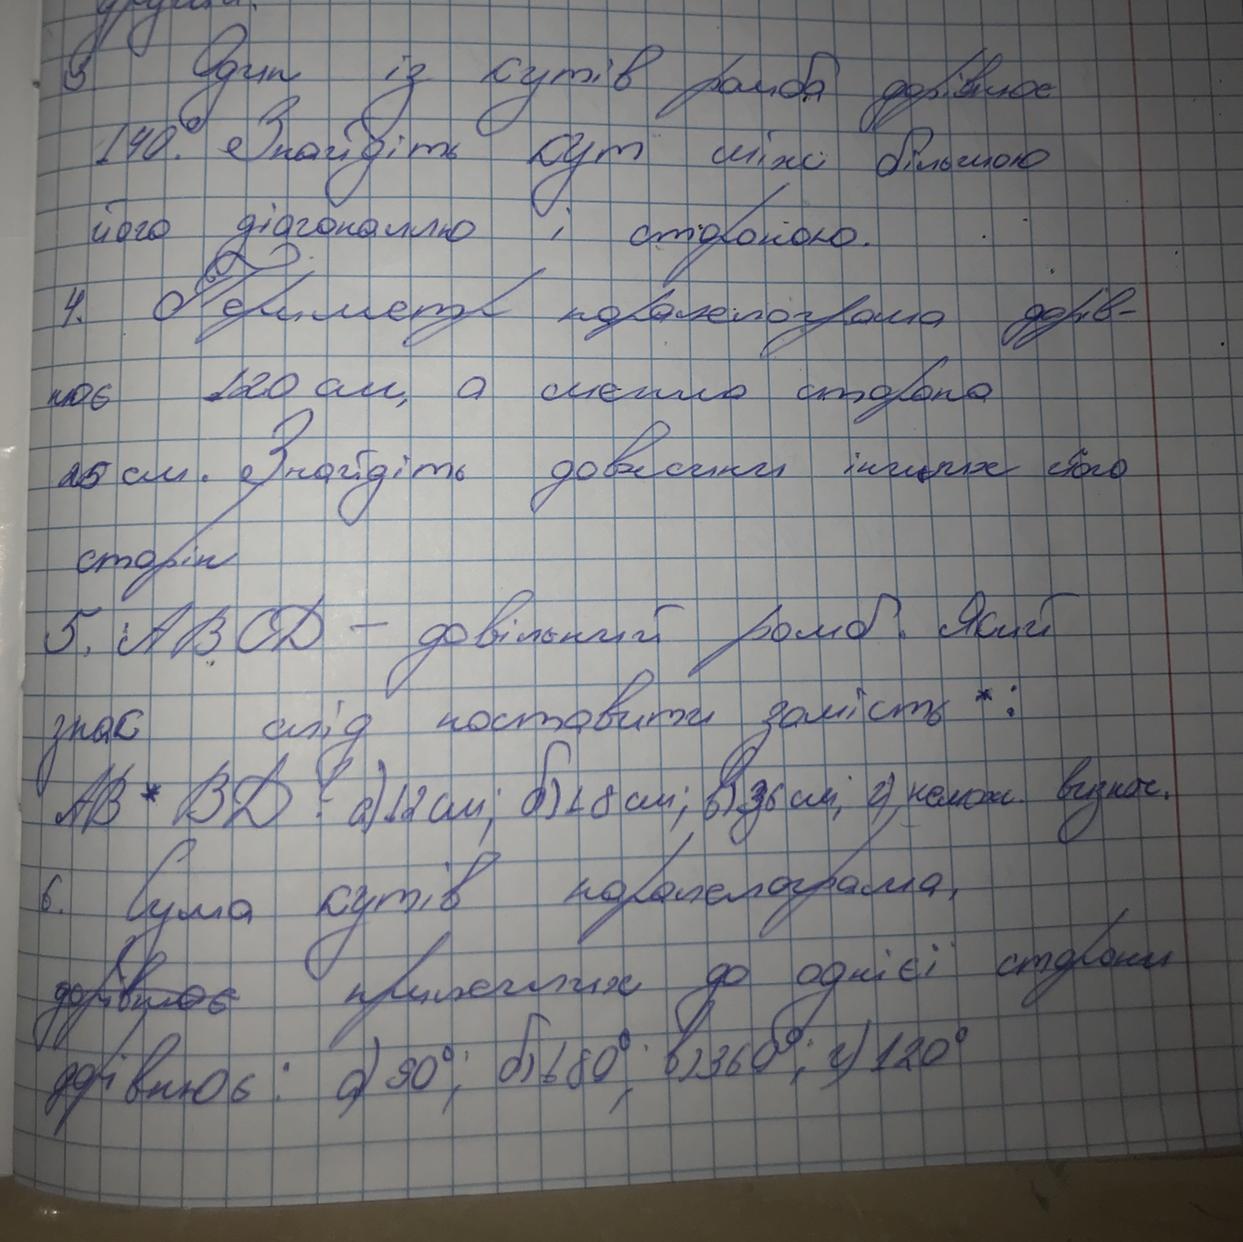 3 Один із кутів ромба дорівнює
140°. Знайдіть кут між більшою
його діагоналлю і стороною.
4. Периметр паралелограма дорів-
нює 120 см, а менша сторона
25 см. Знайдіть довжини інших його
сторін
5. ABCD – довільний ромб. Який
знак слід поставити замість *:
AB * BD : а) 12 см; б) 18 см; в) 36 см; г) немож. визнач.
6. Сума кутів паралелограма,
дорівнює прилеглих до однієї сторони
дорівнює: а) 90°; б) 180°; в) 360°; г) 120°